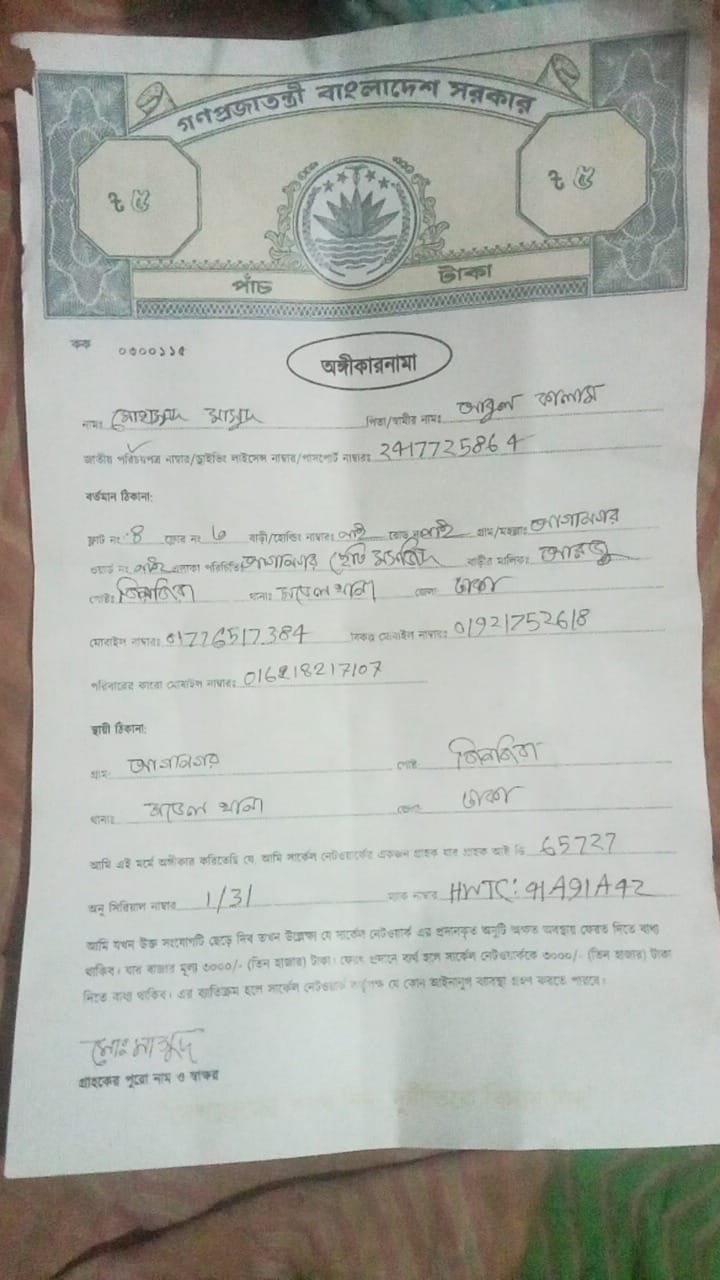 গণপ্রজাতন্ত্রী বাংলাদেশ সরকার
৳ ৫ ৳ ৫
পাঁচ টাকা
কক ০৩০০১১৫
অঙ্গীকারনামা
নামঃ মোহাম্মদ মাসুদ পিতা/স্বামীর নামঃ আবুল কালাম
জাতীয় পরিচয়পত্র নাম্বার/ড্রাইভিং লাইসেন্স নাম্বার/পাসপোর্ট নাম্বারঃ 2417725864
বর্তমান ঠিকানা:
ফ্লাট নং 4 ফ্লোর নং ৬ বাড়ী/হোল্ডিং নাম্বারঃ নাই রোড নাই গ্রাম/মহল্লাঃ আগানগর
ওয়ার্ড নং নাই এলাকা পরিচিতি আগানগর ছোট মসজিদ বাড়ীর মালিকঃ
পোষ্টঃ জিনজিরা থানাঃ মডেল থানা জেলা ঢাকা
মোবাইল নাম্বারঃ 01776517384 বিকল্প মোবাইল নাম্বারঃ 01921752618
পরিবারের কারো মোবাইল নাম্বারঃ
স্থায়ী ঠিকানা:
গ্রামঃ আগানগর পোষ্ট জিনজিরা
থানাঃ মডেল থানা জেলা ঢাকা
আমি এই মর্মে অঙ্গীকার করিতেছি যে, আমি সার্কেল নেটওয়ার্কের একজন গ্রাহক যার গ্রাহক আই ডি 65727
অনু সিরিয়াল নাম্বার 1/31 ম্যাক নম্বর HWTC: 91A91A42
আমি যখন উক্ত সংযোগটি ছেড়ে দিব তখন উল্লেক্ষ্য যে সার্কেল নেটওয়ার্ক এর প্রদানকৃত অনুটি অক্ষত অবস্থায় ফেরত দিতে বাধ্য
থাকিব। যার বাজার মূল্য ৩০০০/- (তিন হাজার) টাকা। ফেরৎ প্রদানে ব্যর্থ হলে সার্কেল নেটওয়ার্ককে ৩০০০/- (তিন হাজার) টাকা
দিতে বাধ্য থাকিব। এর ব্যতিক্রম হলে সার্কেল নেটওয়ার্ক কর্তৃপক্ষ যে কোন আইনানুগ ব্যবস্থা গ্রহণ করতে পারবে।
মোঃ মাসুদ
গ্রাহকের পুরো নাম ও স্বাক্ষর